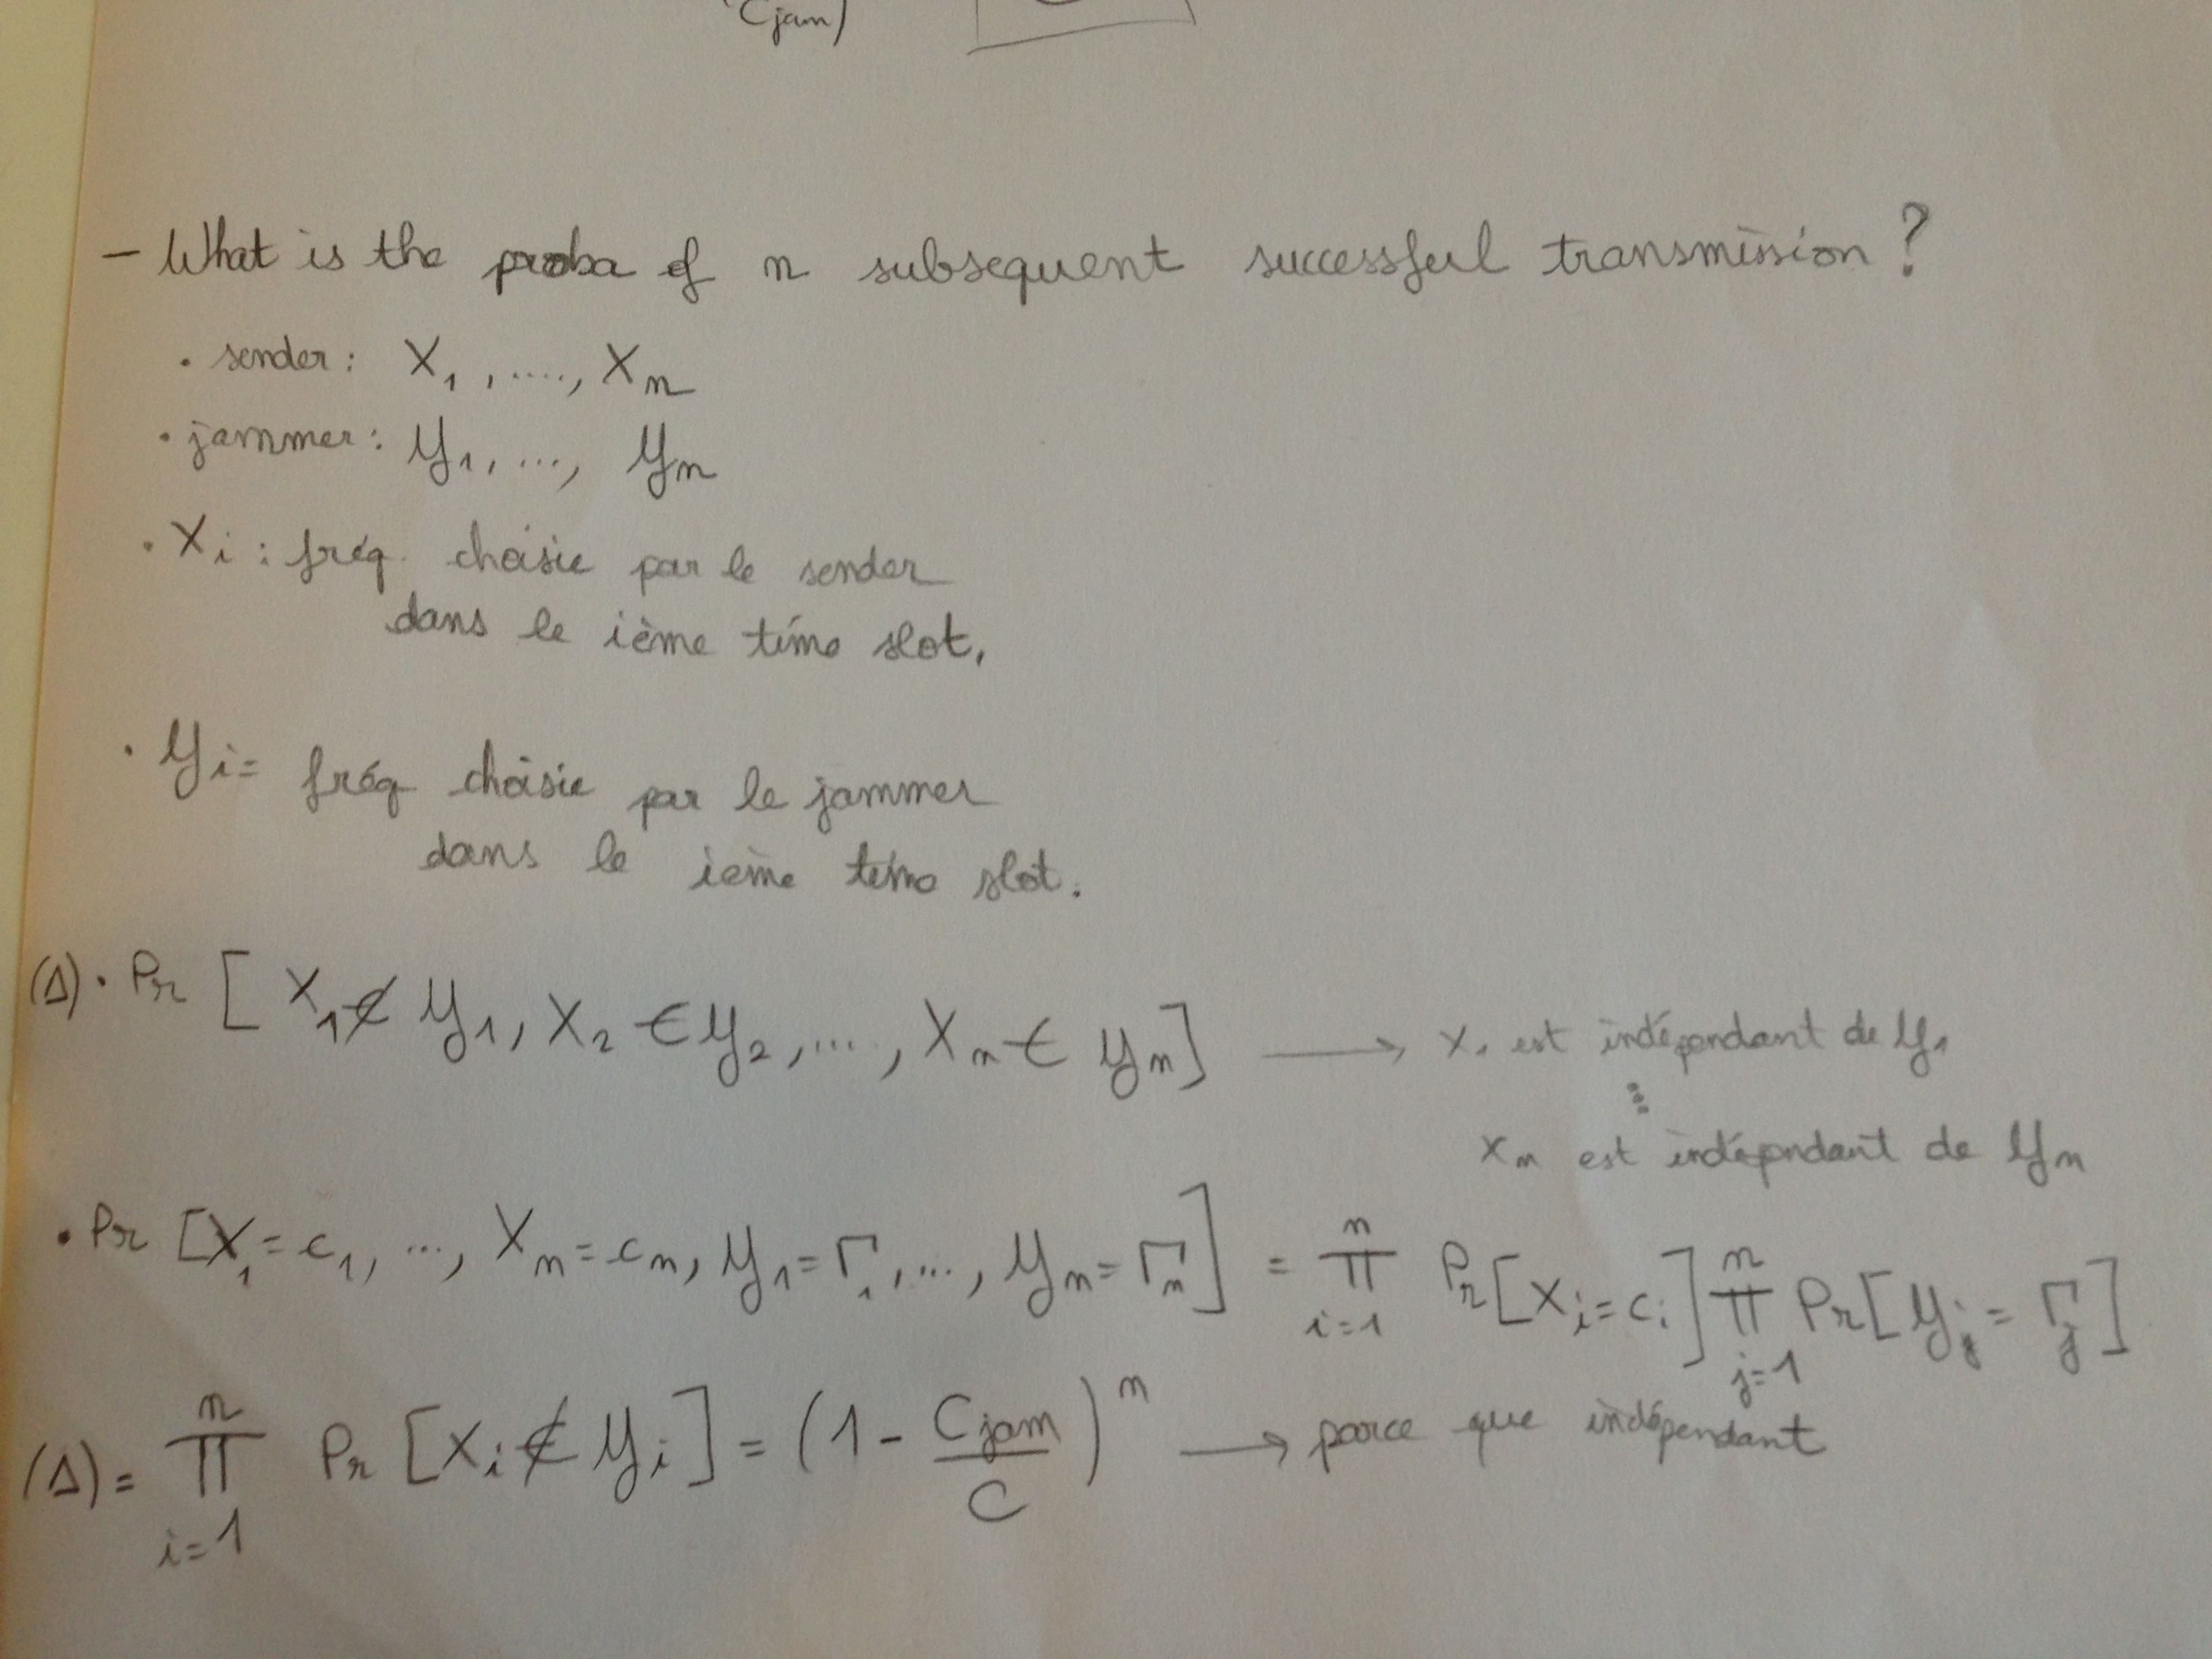 Cjam)
- What is the proba of n subsequent successful transmission ?
• sender : X₁, ...., Xn
• jammer : Y₁, ..., Yn
• Xi : fréq. choisie par le sender
dans le ième time slot.
• Yi = fréq choisie par le jammer
dans le ième time slot.
(Δ) • Pr [ X₁ ∉ Y₁, X₂ ∈ Y₂, ...., Xn ∈ Yn ] ⟶ X₁ est indépendant de Y₁
⋮
Xn est indépendant de Yn
• Pr [X₁ = c₁, ..., Xn = cn, Y₁ = Γ₁, ..., Yn = Γn] = ∏ⁿᵢ₌₁ Pr[Xi = ci] ∏ⁿⱼ₌₁ Pr[Yj = Γj]
(Δ) = ∏ⁿᵢ₌₁ Pr [Xi ∉ Yi] = (1 - Cjam/C)ⁿ ⟶ parce que indépendant